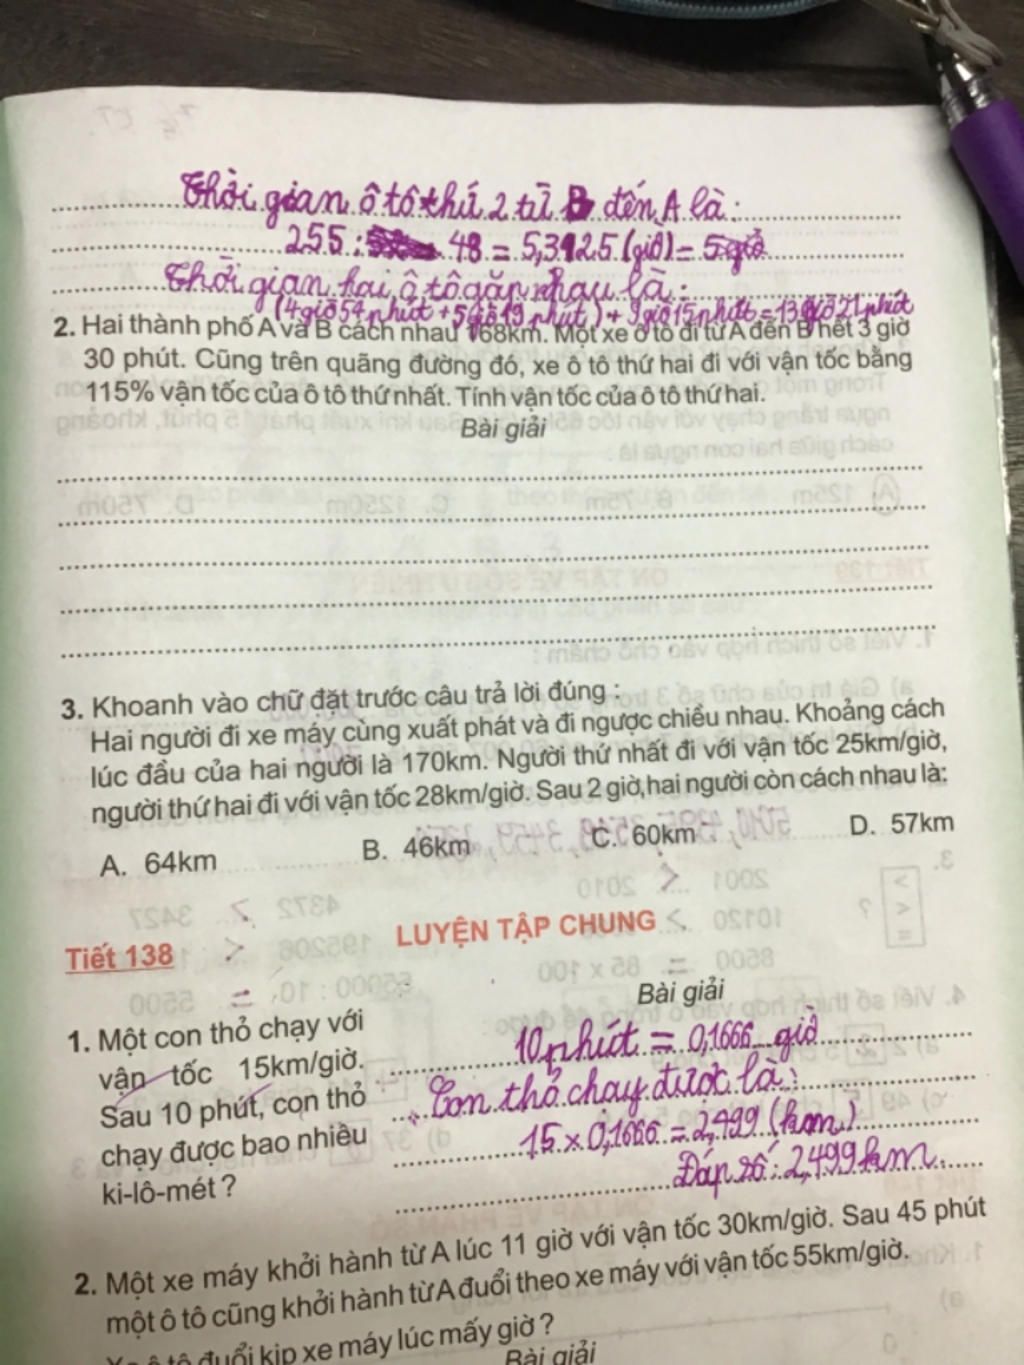 Thời gian ô tô thứ 2 từ B đến A là:
255 : 48 = 5,3125 (giờ) = 5 giờ
Thời gian hai ô tô gặp nhau là:
(4 giờ 54 phút + 5 giờ 19 phút) + 3 giờ 15 phút = 13 giờ 21 phút
2. Hai thành phố A và B cách nhau 168km. Một xe ô tô đi từ A đến B hết 3 giờ
30 phút. Cũng trên quãng đường đó, xe ô tô thứ hai đi với vận tốc bằng
115% vận tốc của ô tô thứ nhất. Tính vận tốc của ô tô thứ hai.
Bài giải
3. Khoanh vào chữ đặt trước câu trả lời đúng :
Hai người đi xe máy cùng xuất phát và đi ngược chiều nhau. Khoảng cách
lúc đầu của hai người là 170km. Người thứ nhất đi với vận tốc 25km/giờ,
người thứ hai đi với vận tốc 28km/giờ. Sau 2 giờ, hai người còn cách nhau là:
A. 64km B. 46km C. 60km D. 57km
Tiết 138 LUYỆN TẬP CHUNG
1. Một con thỏ chạy với
vận tốc 15km/giờ.
Sau 10 phút, con thỏ
chạy được bao nhiêu
ki-lô-mét ?
Bài giải
10 phút = 0,1666 giờ
Con thỏ chạy được là:
15 x 0,1666 = 2,499 (km)
Đáp số: 2,499 km.
2. Một xe máy khởi hành từ A lúc 11 giờ với vận tốc 30km/giờ. Sau 45 phút
một ô tô cũng khởi hành từ A đuổi theo xe máy với vận tốc 55km/giờ.
ô tô đuổi kịp xe máy lúc mấy giờ ?
Bài giải